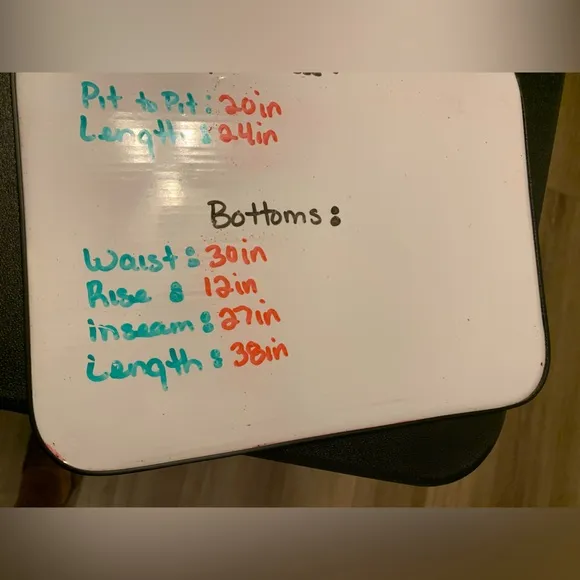 Pit to Pit: 20in
Length: 24in
Bottoms:
Waist: 30in
Rise: 12in
inseam: 27in
Length: 38in